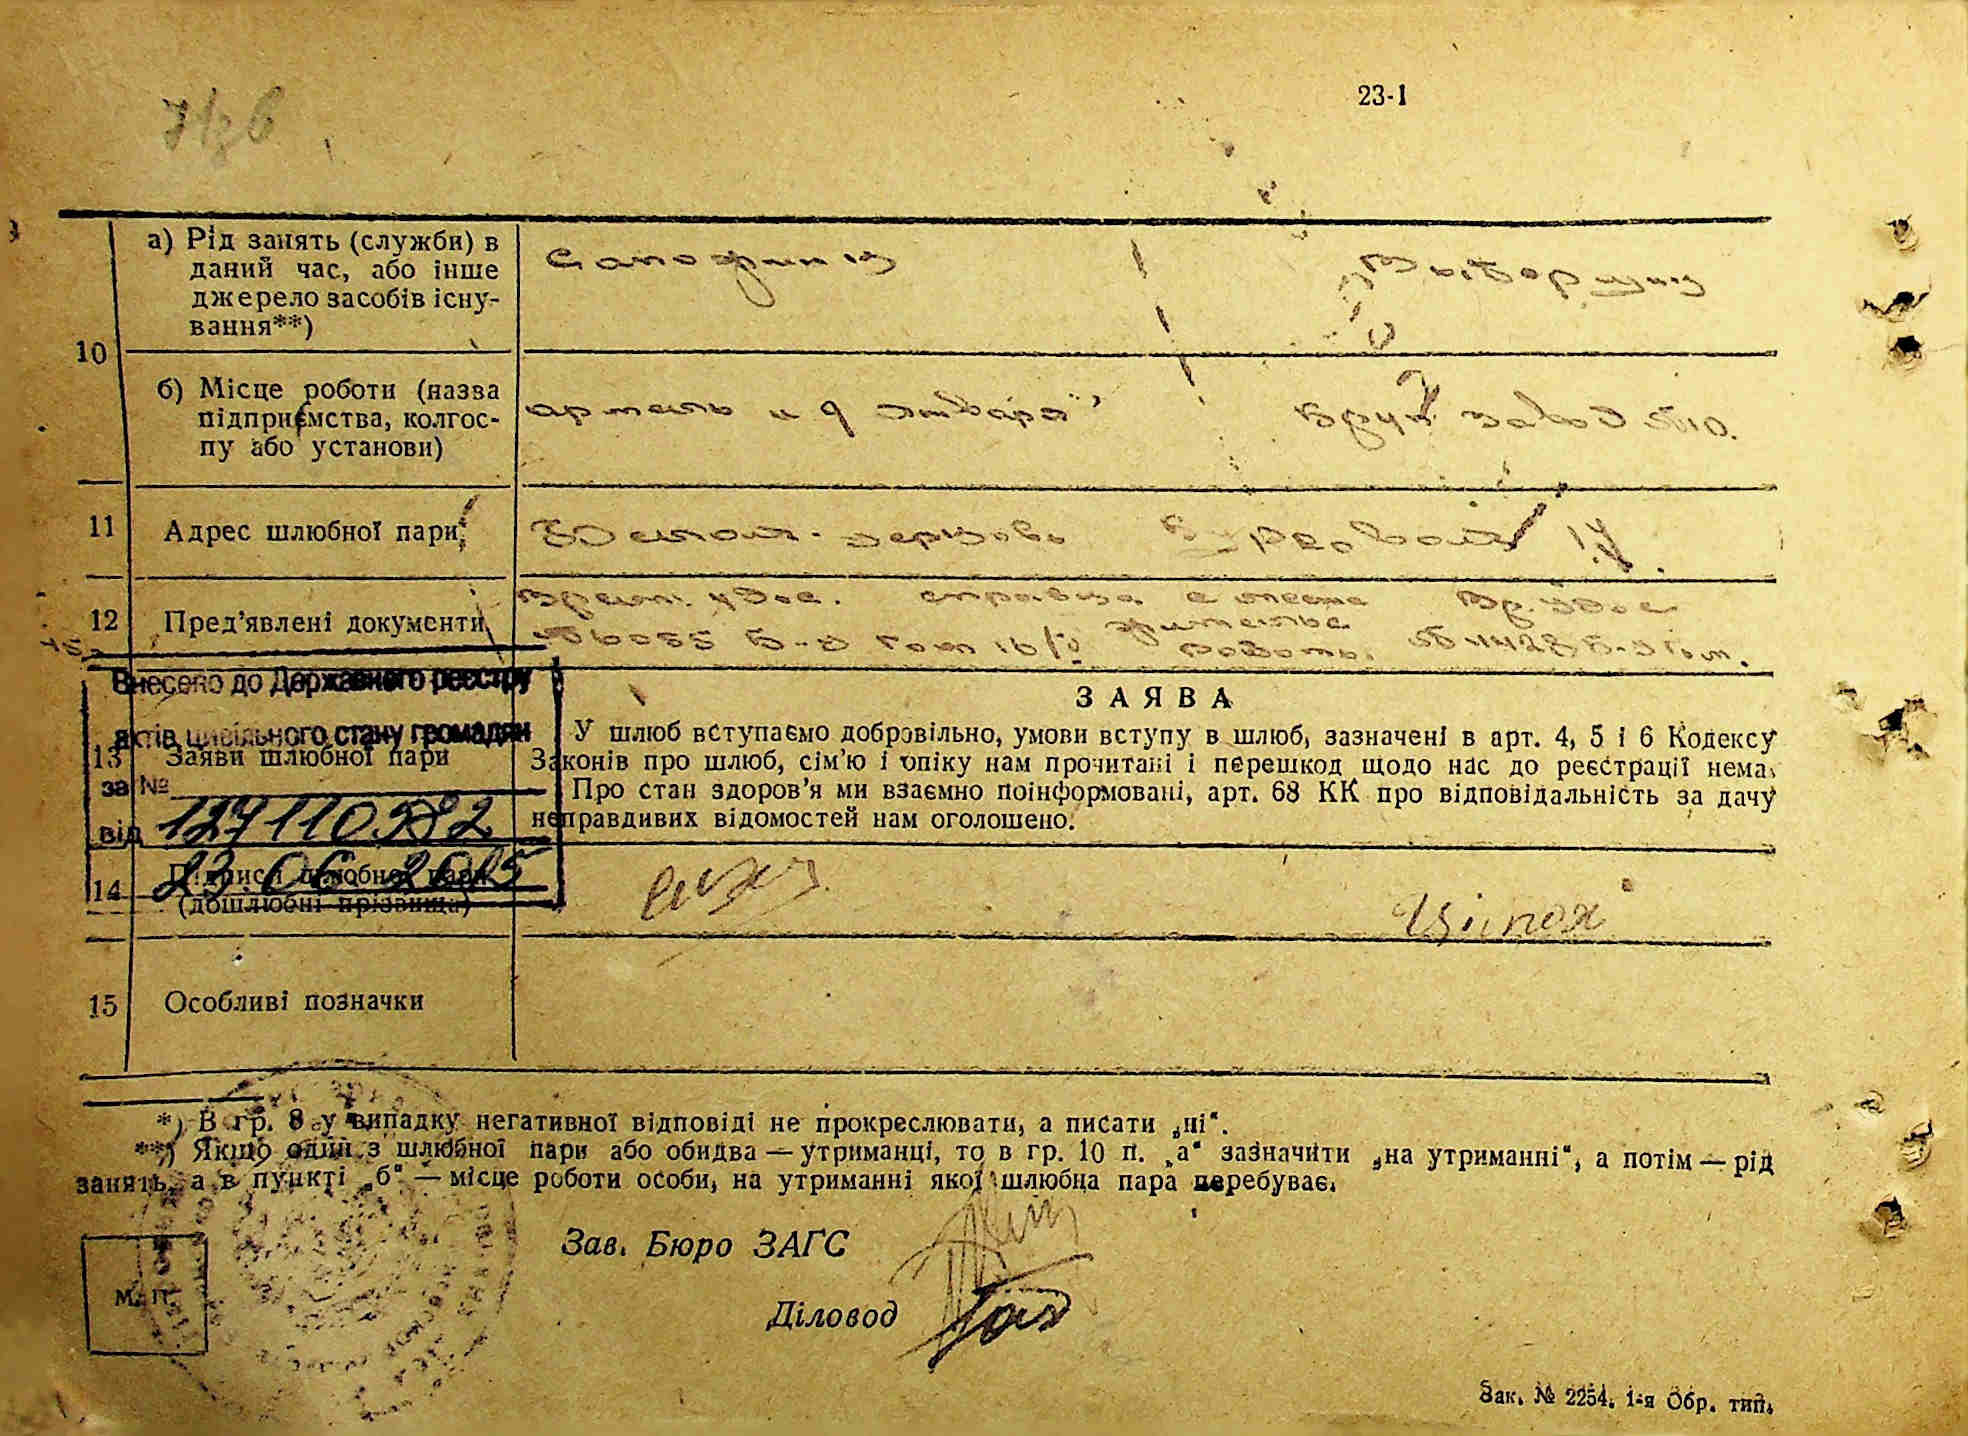 23-1
10
а) Рід занять (служби) в
даний час, або інше
джерело засобів існу-
вання**)
Сапожник
Выборщиц
б) Місце роботи (назва
підприємства, колгос-
пу або установи)
артель и 9 января"
завод
11
Адрес шлюбної пари
12
Пред'явлені документи
справка с места
работы.
Внесено до Державного реєстру
актів цивільного стану громадян
за №
127110582
від
23.06.2015
13
Заяви шлюбної пари
ЗАЯВА
У шлюб вступаємо добровільно, умови вступу в шлюб, зазначені в арт. 4, 5 і 6 Кодексу
Законів про шлюб, сім'ю і опіку нам прочитані і перешкод щодо нас до реєстрації нема.
Про стан здоров'я ми взаємно поінформовані, арт. 68 КК про відповідальність за дачу
неправдивих відомостей нам оголошено.
14
Підписи шлюбної пари
(дошлюбні прізвища)
15
Особливі позначки
*) В гр. 8 у випадку негативної відповіді не прокреслювати, а писати „ні“.
**) Якщо один з шлюбної пари або обидва — утриманці, то в гр. 10 п. „а“ зазначити „на утриманні“, а потім — рід
занять, а в пункті „б“ — місце роботи особи, на утриманні якої шлюбна пара перебуває.
М. П.
Зав. Бюро ЗАГС
Діловод
Зак. № 2254. 1-я Обр. тип.